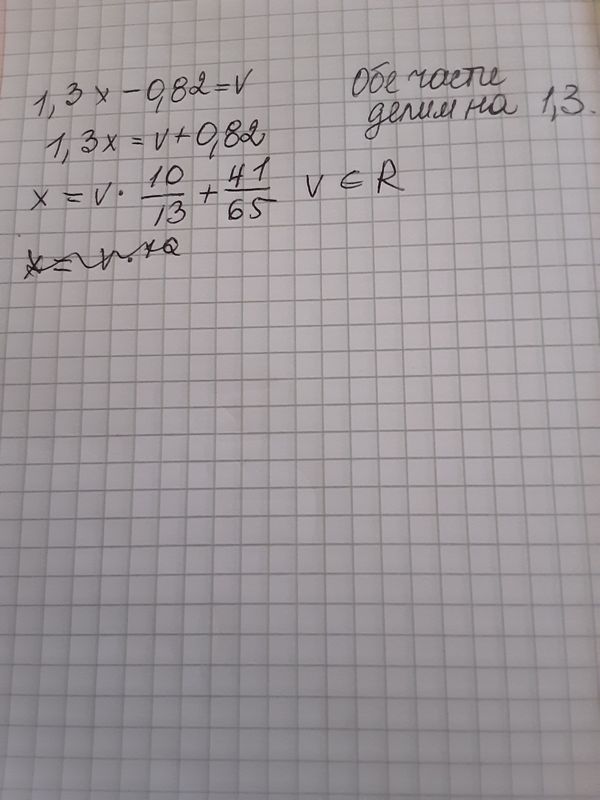 1,3x-0,82=v
Обе части
делим на 1,3.
1,3x=v+0,82
x=v·10/13+41/65 v∈R